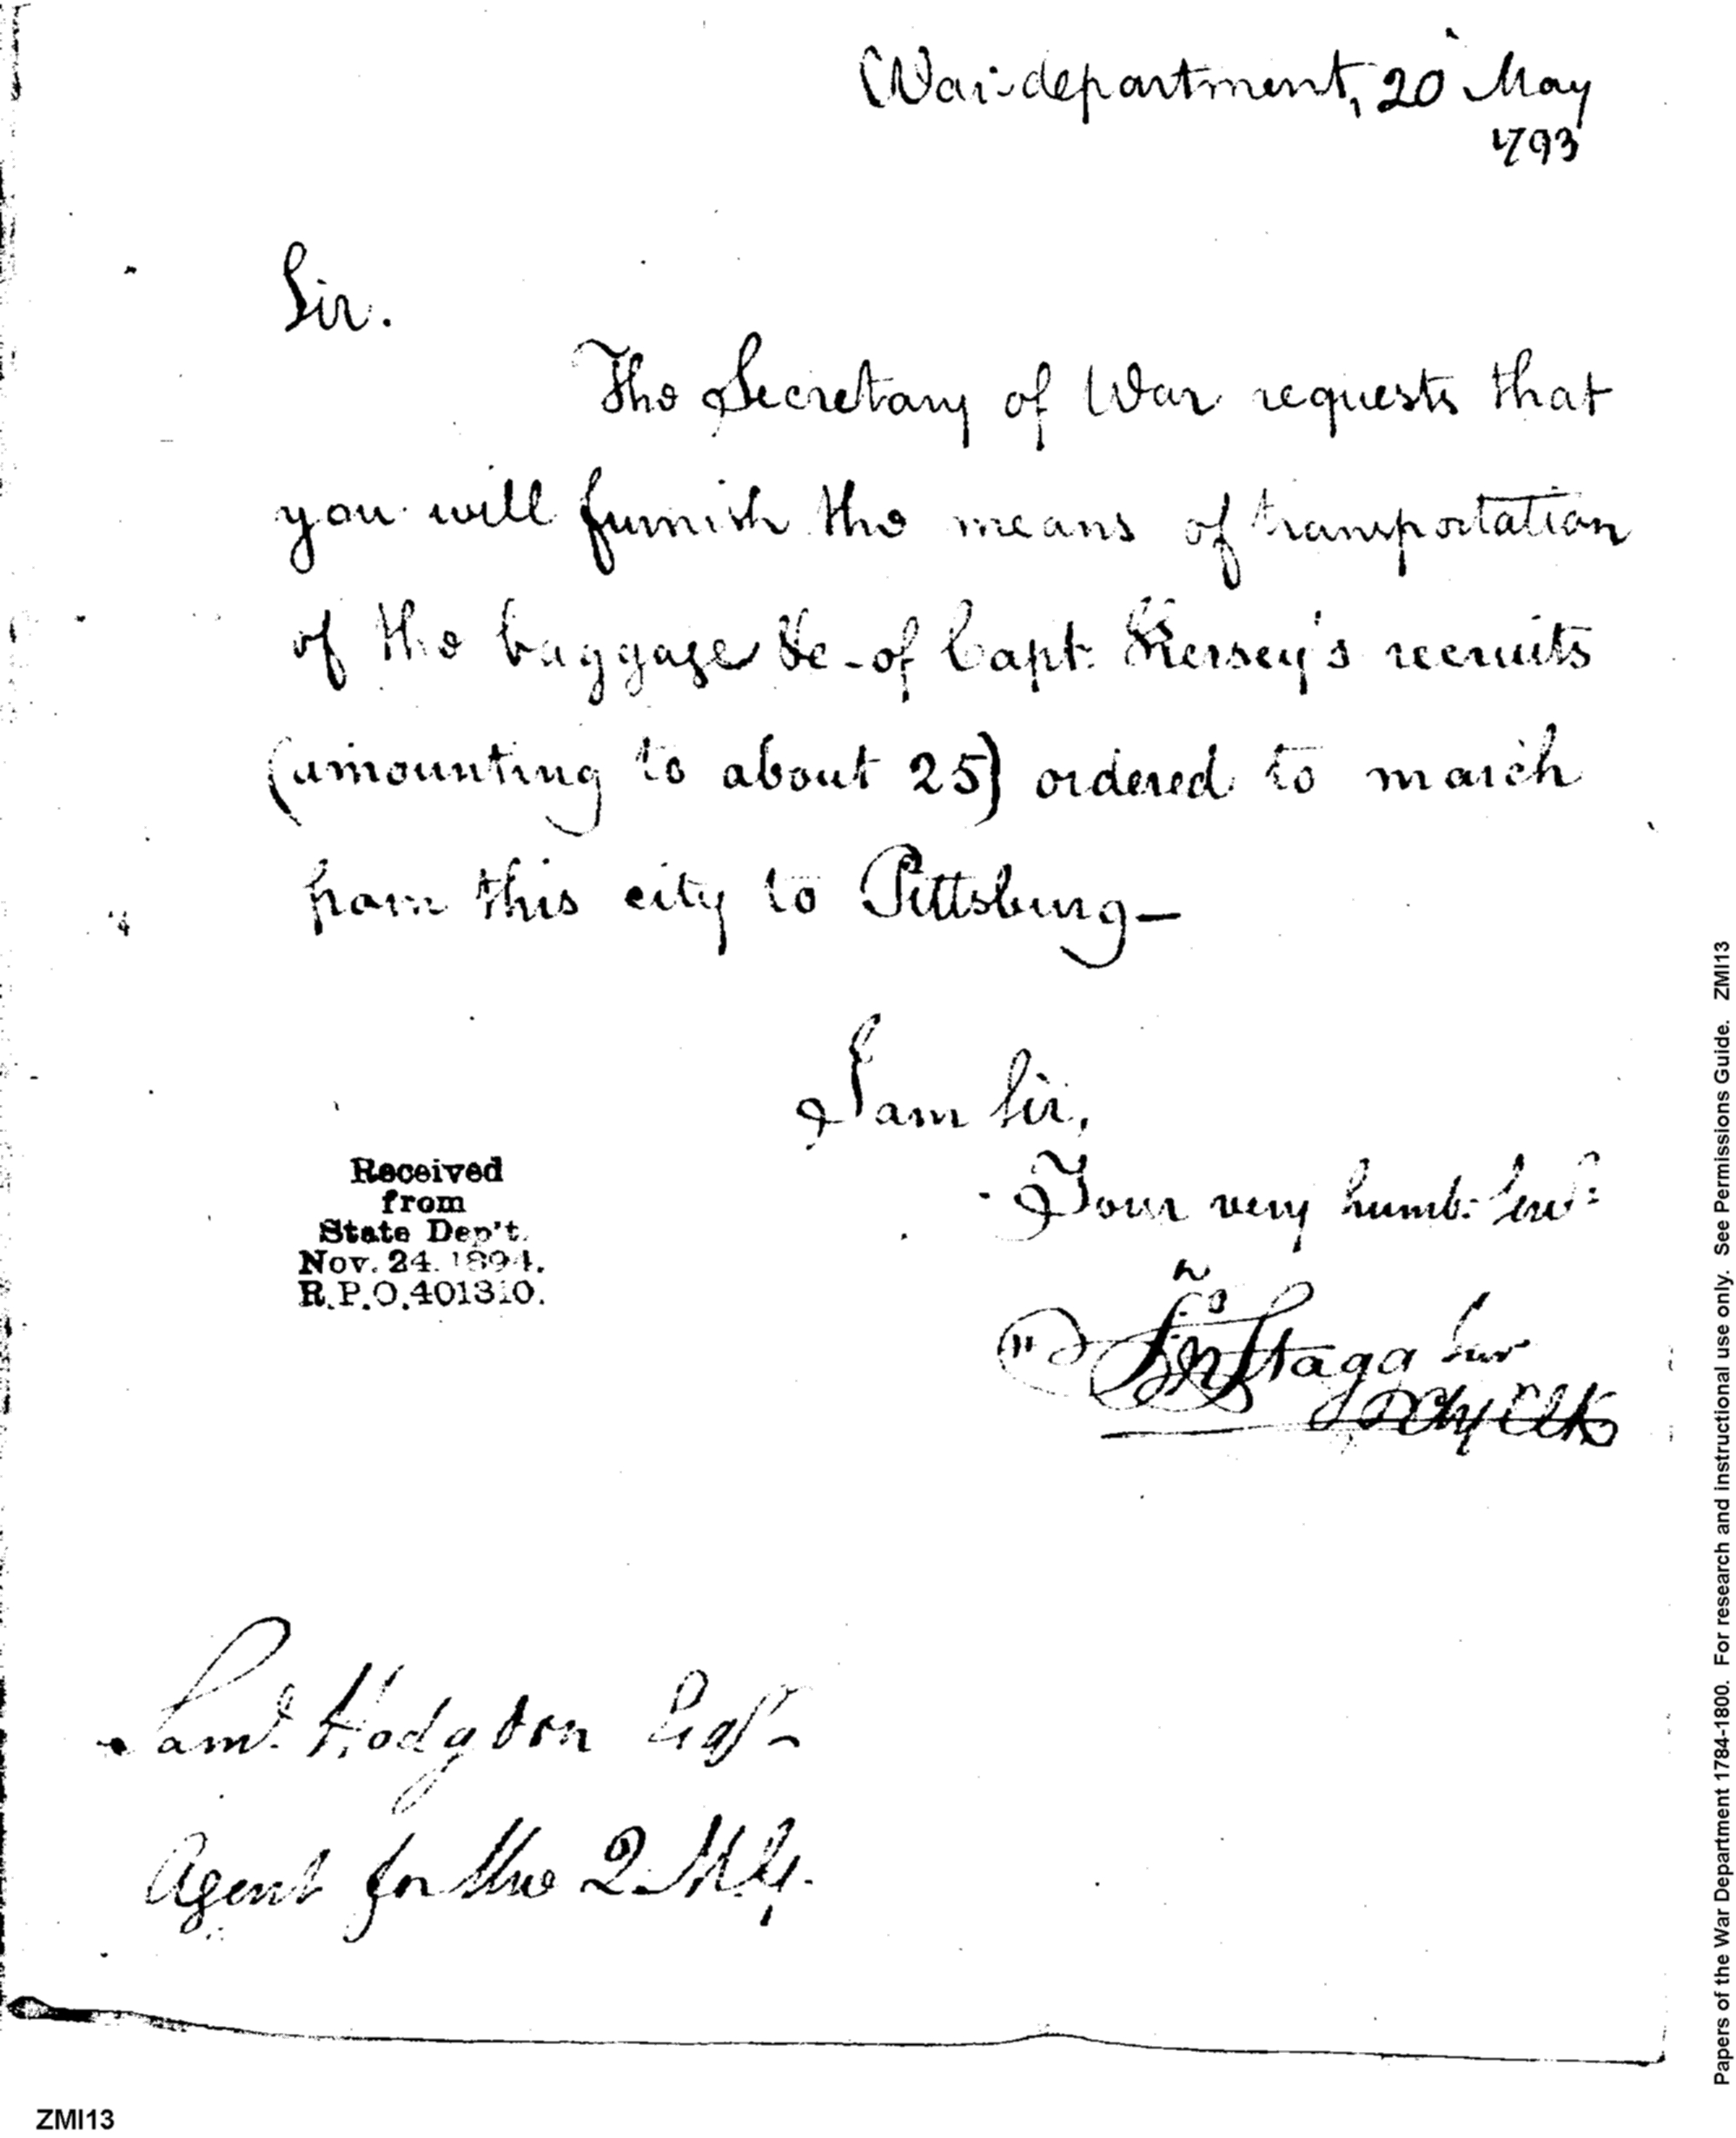 War-department, 20 May
1793
Sir.
The Secretary of War requests that
you will furnish the means of transportation
of the baggage &c - of Capt. Kersey's recruits
(amounting to about 25) ordered to march
from this city to Pittsburg—
I am Sir,
Your very humb: Serv:
Jno Stagg Jur
Chf Clk
Received
from
State Dep't.
Nov. 24. 1894.
R.P.O. 401310.
Saml. Hodgdon Esqr
Agent for the Q. M. G.
Papers of the War Department 1784-1800. For research and instructional use only. See Permissions Guide. ZMI13
ZMI13